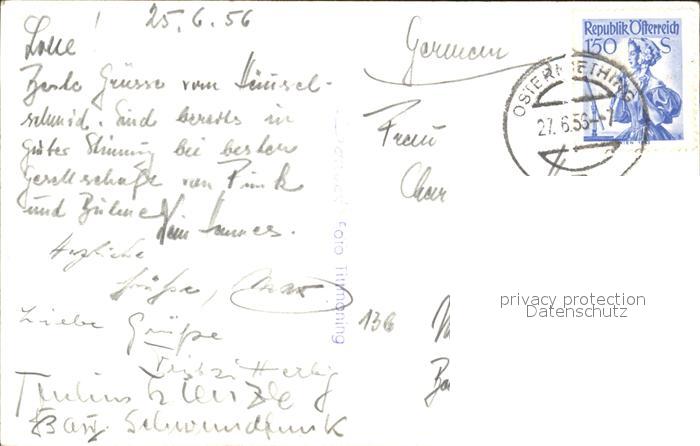 25.6.56
Lotte!
Beste Grüsse vom Häusel-
schmid. Sind bereits in
guter Stimmung bei bester
Gesellschaft von Funk
und Bühne
Dein Hannes.
Herzliche
Grüße, Max
Liebe Grüße
Herbig
Schwundfunk
German
Frau
Char
136
Republik Österreich
1'50 S
OSTERMIETHING
27.6.56
Foto Tittmoning
privacy protection
Datenschutz